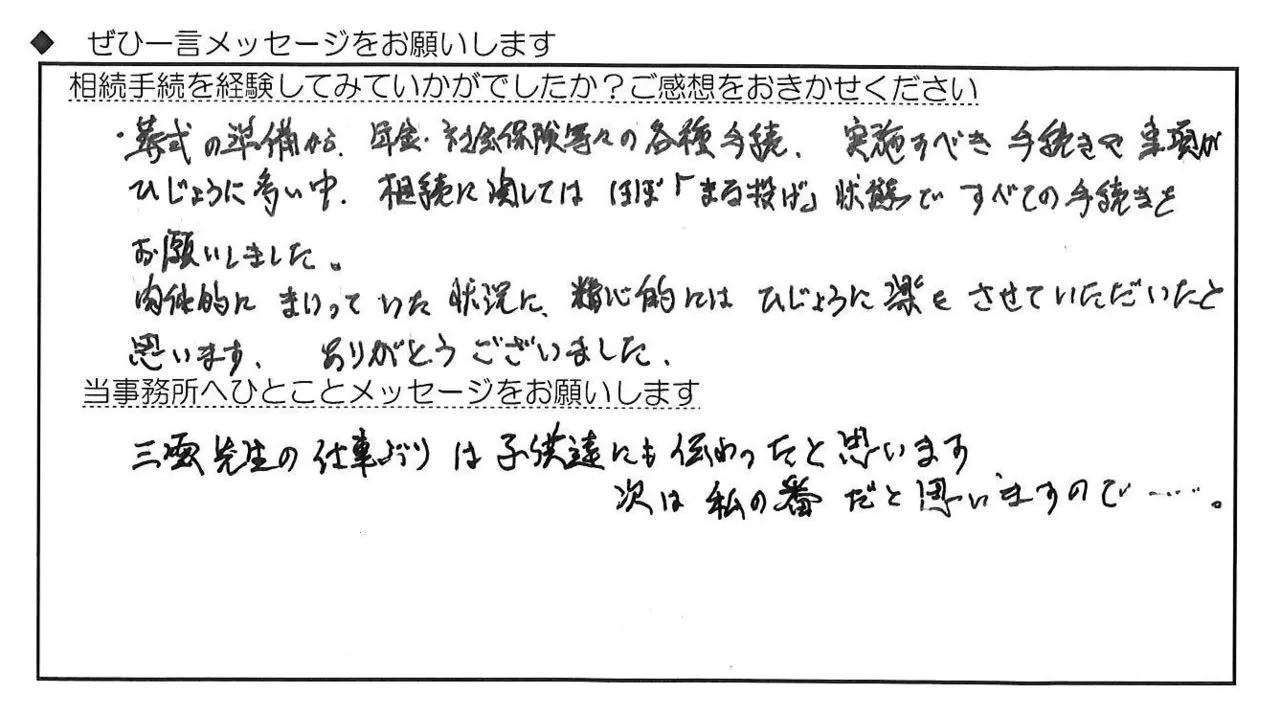 ◆ ぜひ一言メッセージをお願いします
相続手続を経験してみていかがでしたか？ご感想をおきかせください
・葬式の準備から、年金・社会保険等々の各種手続、実施すべき手続きや事項が
ひじょうに多い中、相続に関してはほぼ「まる投げ」状態ですべての手続きを
お願いしました。
肉体的にまいっていた状況に、精神的にはひじょうに楽をさせていただいたと
思います。ありがとうございました。
当事務所へひとことメッセージをお願いします
三雲先生の仕事ぶりは子供達にも伝わったと思います
次は私の番だと思いますので……。